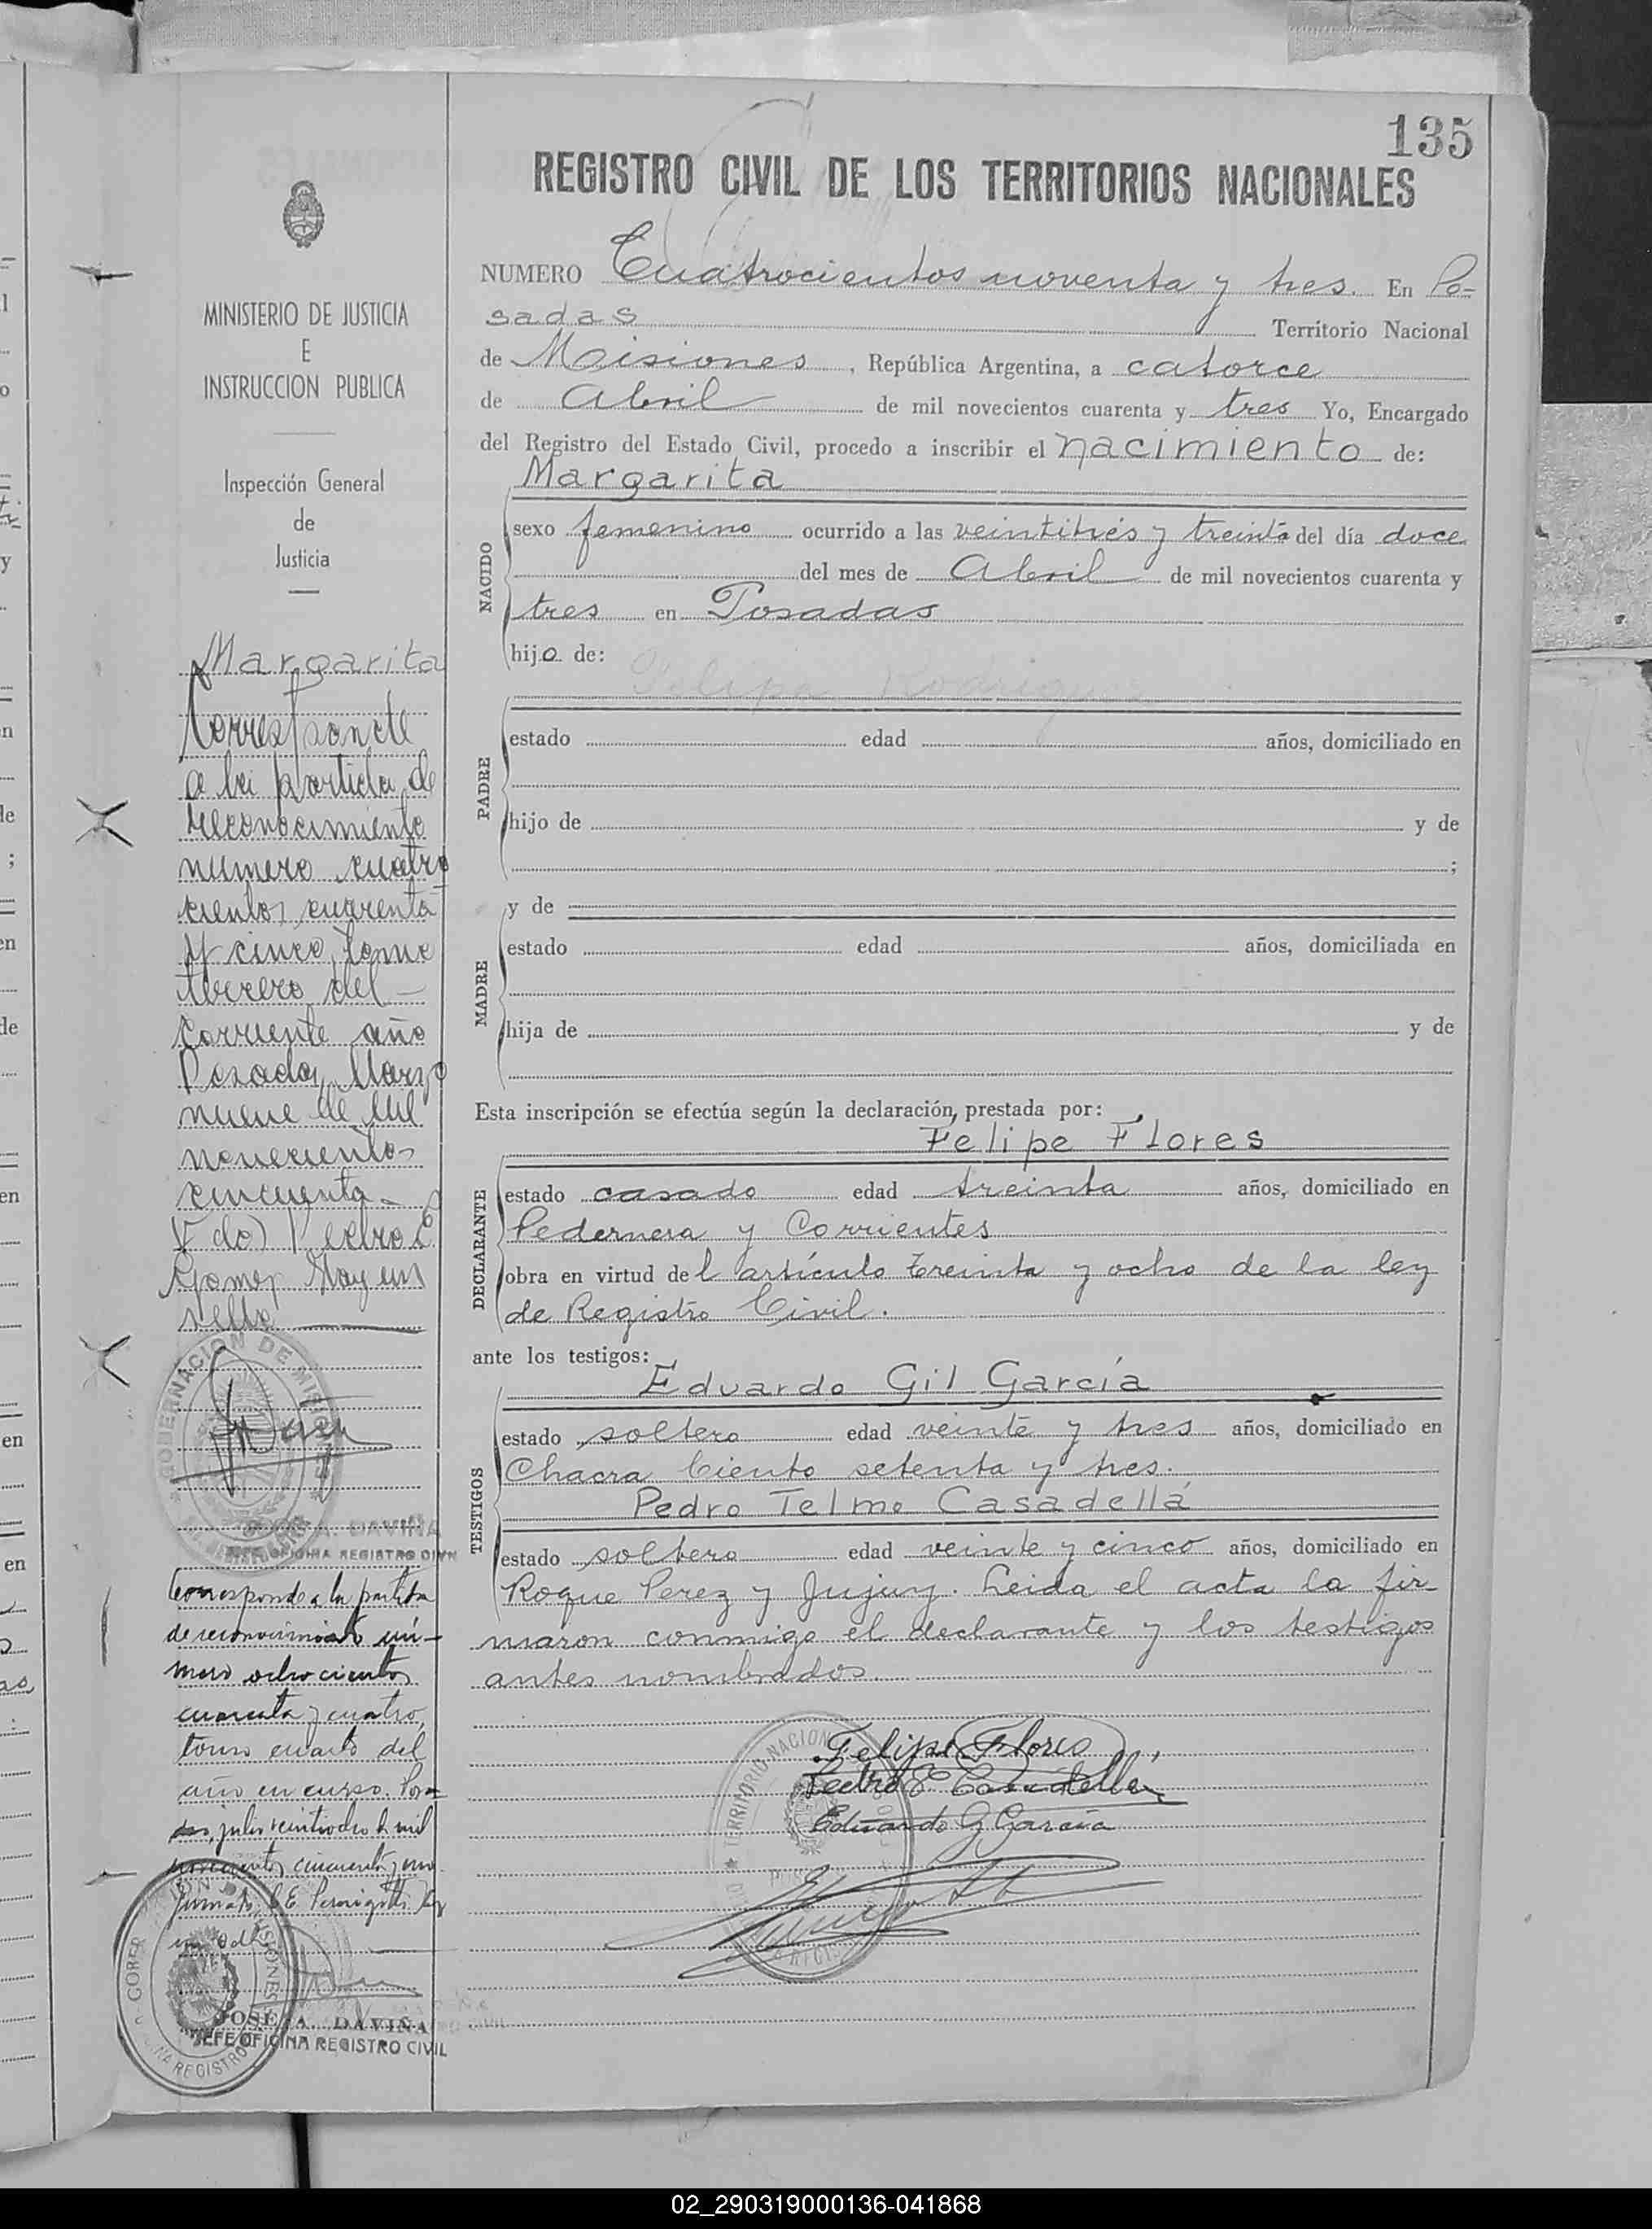 135
REGISTRO CIVIL DE LOS TERRITORIOS NACIONALES
MINISTERIO DE JUSTICIA
E
INSTRUCCION PUBLICA
Inspección General
de
Justicia
NUMERO Cuatrocientos noventa y tres. En Po-
sadas Territorio Nacional
de Misiones, República Argentina, a catorce
de Abril de mil novecientos cuarenta y tres Yo, Encargado
del Registro del Estado Civil, procedo a inscribir el nacimiento de:
Margarita
NACIDO
sexo femenino ocurrido a las veintitrés y treinta del día doce
del mes de Abril de mil novecientos cuarenta y
tres en Posadas
hijo de:
PADRE
estado edad años, domiciliado en
hijo de y de
;
MADRE
y de
estado edad años, domiciliada en
hija de y de
Esta inscripción se efectúa según la declaración, prestada por:
Felipe Flores
DECLARANTE
estado casado edad treinta años, domiciliado en
Pedernera y Corrientes
obra en virtud del artículo treinta y ocho de la ley
de Registro Civil.
ante los testigos:
Eduardo Gil García
TESTIGOS
estado soltero edad veinte y tres años, domiciliado en
Chacra Ciento setenta y tres.
Pedro Telmo Casadellá
estado soltero edad veinte y cinco años, domiciliado en
Roque Perez y Jujuy. Leida el acta la fir-
maron conmigo el declarante y los testigos
antes nombrados
Felipe Flores
Eduardo G García
Margarita
Corresponde
a la partida de
reconocimiento
numero cuatro
cientos cuarenta
y cinco, tomo
tercero del
corriente año
Posadas, Marzo
nueve de mil
novecientos
cincuenta
Fdo) Pedro
Gomez Hay un
sello
GOBERNACION DE MISIONES
DAVIÑA
OFICINA REGISTRO CIVIL
Corresponde a la partida
de reconocimiento nú-
mero ochocientos
cuarenta y cuatro,
tomo cuarto del
año en curso. Posa-
das, julio veintiocho de mil
novecientos cincuenta y uno
JOSE A. DAVIÑA
JEFE OFICINA REGISTRO CIVIL
02_290319000136-041868